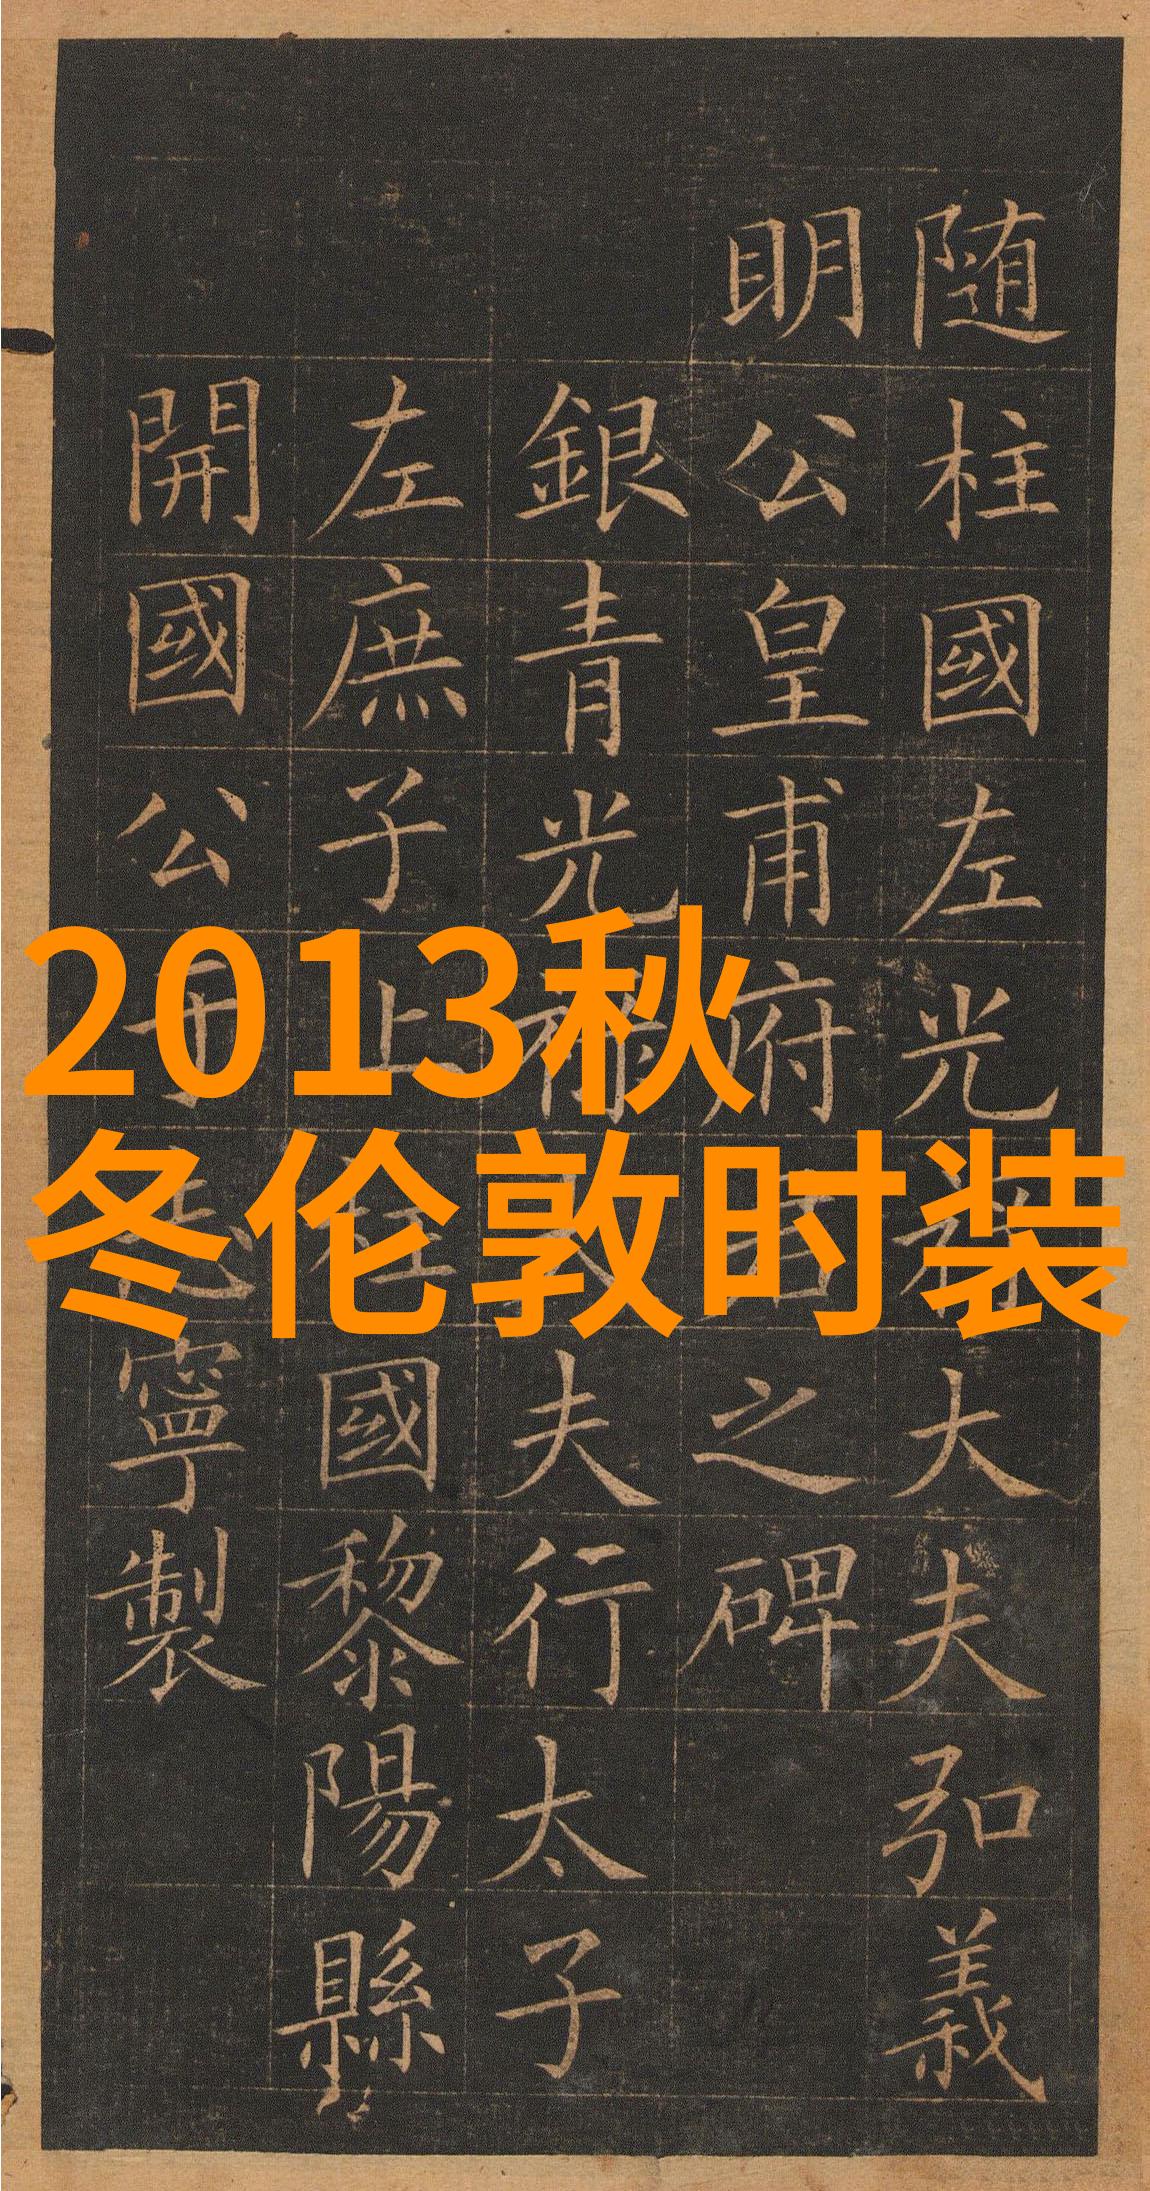 随柱國左光禄大夫弘義
明公皇甫府君之碑
銀青光禄大夫行太子
左庶子上柱國黎陽縣
開國公于志寧製
2013秋
冬伦敦时装